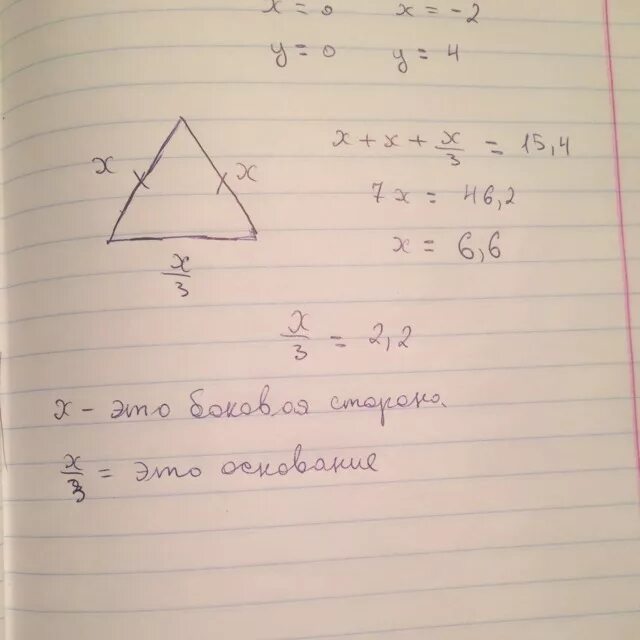 x = 0 x = -2
y = 0 y = 4
x x
x/3
x + x + x/3 = 15,4
7x = 46,2
x = 6,6
x/3 = 2,2
x - это боковая сторона.
x/3 = это основание